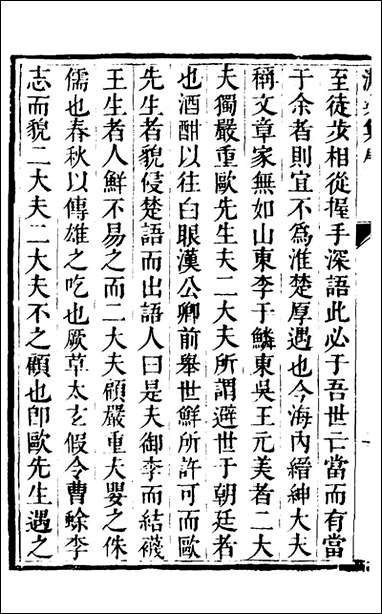 至徒步相從握手深語此必于吾世亡當而有當
于余者則宜不爲淮楚厚遇也今海内縉紳大夫
稱文章家無如山東李于鱗東吳王元美者二大
夫獨嚴重歐先生夫二大夫所謂避世于朝廷者
也酒酣以往白眼漢公卿前舉世鮮所許可而歐
先生者貌侵楚語而出語人曰是夫御李而結襪
王生者人鮮不易之而二大夫顧嚴重夫嬰之侏
儒也春秋以傳雄之吃也厥草太玄假令曹蜍李
志而貌二大夫二大夫不之顧也卽歐先生遇之